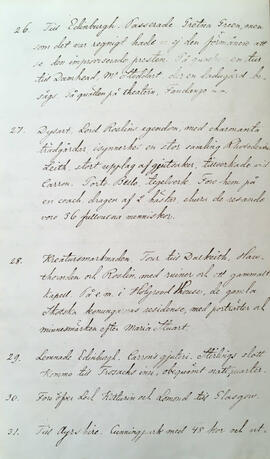 26. Till Edinburgh. Passerade Gretna Green, men
som det var regnigt hade – ej den förmånen att
se den improviserade presten. På en tur
till Damhead, Mr Stoddart der en ladugård be-
sågs. Så qvällen på theatern, Fandango
27. Dysart, Lord Roslins egendom, med charmanta
trädgårder isynnerhet en stor samling Rhododend.
Leith, stort upplag af gjutsaker, tillverkade vid
Carron. Porto Bello, tegelverk. For hem på
en coach dragen af 2 hästar ehuru de resande
voro 36 fullvuxna menniskor.
28. Kreatursmarknaden. Tour till Dalkeith, Haw-
thornden och Roslin, med ruiner och ett gammalt
kapell. På e.m. i Holyrood House, de gamla
Skotska konungarnas residense, med porträter och
minnesmärken efter Maria Stuart.
29. Lemnade Edinburgh. Carons gjuteri. Stirlings slott
kommo till Trosachs inn, obeqvämt nattqvarter.
30. For öfver Loch Katrin och Lomond till Glasgow.
31. Till Ayrshire. Cunningpark med 48 kor och ut-